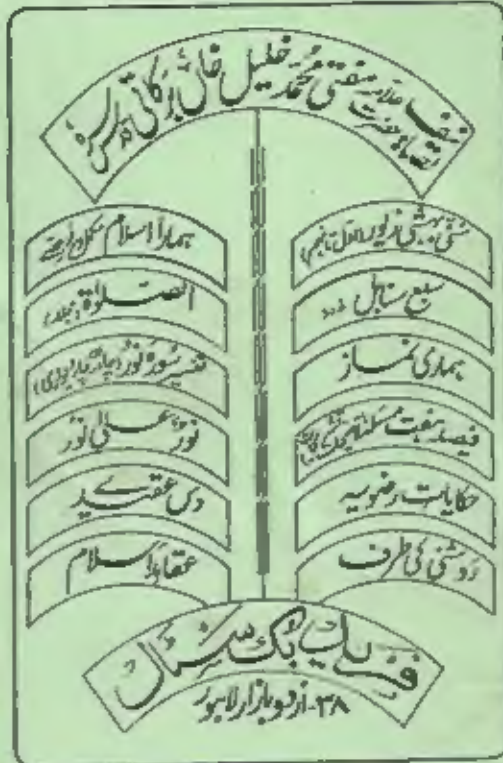 تصانیف حضرت علامہ مفتی محمد خلیل خاں برکاتی قدس سرہ
سنی بہشتی زیور (اول تا پنجم)
سبع سنابل اردو
ہماری نماز
فیصلہ ہفت مسئلہ
حکایات رضویہ
روشنی کی طرف
ہمارا اسلام مکمل
الصلوٰۃ (مجلد)
تفسیر سورۂ نور (چادر چاردیواری)
نورٌ علیٰ نور
دس عقیدے
عقائد اسلام
فرید بک سٹال
۳۸-اردو بازار لاہور